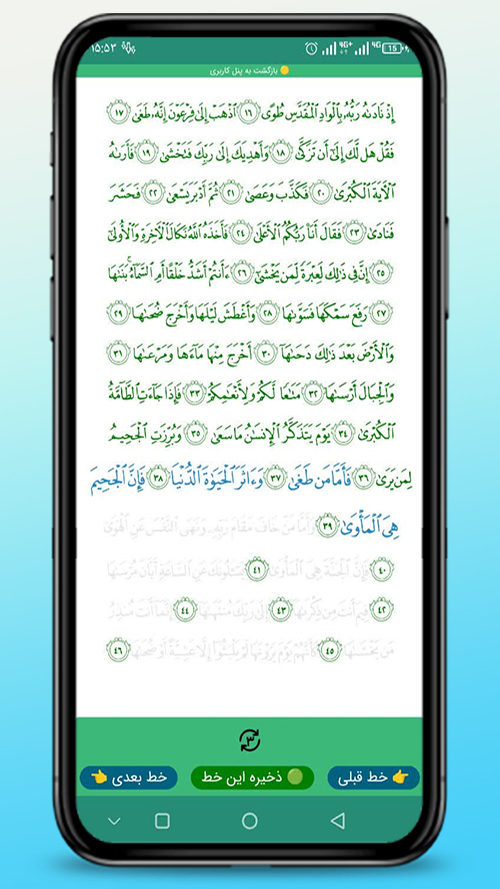 ۱۵:۵۳ 4G+ 4G 15
🟡 بازگشت به پنل کاربری
إِذْ نَادَىٰهُ رَبُّهُۥ بِٱلْوَادِ ٱلْمُقَدَّسِ طُوًى ١٦ ٱذْهَبْ إِلَىٰ فِرْعَوْنَ إِنَّهُۥ طَغَىٰ ١٧
فَقُلْ هَل لَّكَ إِلَىٰٓ أَن تَزَكَّىٰ ١٨ وَأَهْدِيَكَ إِلَىٰ رَبِّكَ فَتَخْشَىٰ ١٩ فَأَرَىٰهُ
ٱلْـَٔايَةَ ٱلْكُبْرَىٰ ٢٠ فَكَذَّبَ وَعَصَىٰ ٢١ ثُمَّ أَدْبَرَ يَسْعَىٰ ٢٢ فَحَشَرَ
فَنَادَىٰ ٢٣ فَقَالَ أَنَا۠ رَبُّكُمُ ٱلْأَعْلَىٰ ٢٤ فَأَخَذَهُ ٱللَّهُ نَكَالَ ٱلْـَٔاخِرَةِ وَٱلْأُولَىٰٓ
٢٥ إِنَّ فِى ذَٰلِكَ لَعِبْرَةً لِّمَن يَخْشَىٰٓ ٢٦ ءَأَنتُمْ أَشَدُّ خَلْقًا أَمِ ٱلسَّمَآءُ ۚ بَنَىٰهَا
٢٧ رَفَعَ سَمْكَهَا فَسَوَّىٰهَا ٢٨ وَأَغْطَشَ لَيْلَهَا وَأَخْرَجَ ضُحَىٰهَا ٢٩
وَٱلْأَرْضَ بَعْدَ ذَٰلِكَ دَحَىٰهَآ ٣٠ أَخْرَجَ مِنْهَا مَآءَهَا وَمَرْعَىٰهَا ٣١
وَٱلْجِبَالَ أَرْسَىٰهَا ٣٢ مَتَٰعًا لَّكُمْ وَلِأَنْعَٰمِكُمْ ٣٣ فَإِذَا جَآءَتِ ٱلطَّآمَّةُ
ٱلْكُبْرَىٰ ٣٤ يَوْمَ يَتَذَكَّرُ ٱلْإِنسَٰنُ مَا سَعَىٰ ٣٥ وَبُرِّزَتِ ٱلْجَحِيمُ
لِمَن يَرَىٰ ٣٦ فَأَمَّا مَن طَغَىٰ ٣٧ وَءَاثَرَ ٱلْحَيَوٰةَ ٱلدُّنْيَا ٣٨ فَإِنَّ ٱلْجَحِيمَ
هِىَ ٱلْمَأْوَىٰ ٣٩ وَأَمَّا مَنْ خَافَ مَقَامَ رَبِّهِۦ وَنَهَى ٱلنَّفْسَ عَنِ ٱلْهَوَىٰ
٤٠ فَإِنَّ ٱلْجَنَّةَ هِىَ ٱلْمَأْوَىٰ ٤١ يَسْـَٔلُونَكَ عَنِ ٱلسَّاعَةِ أَيَّانَ مُرْسَىٰهَا
٤٢ فِيمَ أَنتَ مِن ذِكْرَىٰهَآ ٤٣ إِلَىٰ رَبِّكَ مُنتَهَىٰهَآ ٤٤ إِنَّمَآ أَنتَ مُنذِرُ
مَن يَخْشَىٰهَا ٤٥ كَأَنَّهُمْ يَوْمَ يَرَوْنَهَا لَمْ يَلْبَثُوٓا۟ إِلَّا عَشِيَّةً أَوْ ضُحَىٰهَا ٤٦
۳
👉 خط قبلی
🟢 ذخیره این خط
خط بعدی 👈